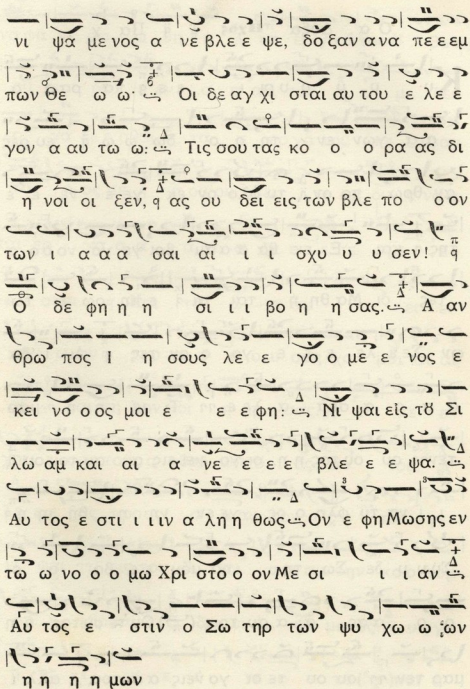 νι ψα με νος α νε βλε ε ψε, δο ξαν α να πε ε εμ
πων Θε ω ω·
Οι δε αγ χι σται αυ του ε λε ε
γον α αυ τω ω:
Τις σου τας κο ο ο ρα ας δι
η νοι οι ξεν, ας ου δει εις των βλε πο ο ον
των ι α α α σαι αι ι ι σχυ υ υ σεν!
Ο δε φη η η σι ι ι βο η η σας.
Α αν
θρω πος Ι η σους λε ε γο ο με ε νος ε
κει νο ο ος μοι ε ε ε φη:
Νι ψαι εις τȣ Σι
λω αμ και αι α νε ε ε ε βλε ε ε ψα.
Αυ τος ε στι ι ιν α λη η θως
Ον ε φη Μωσης εν
τω ω νο ο ο μω Χρι στο ο ον Με σι ι ι αν
Αυ τος ε στιν ο Σω τηρ των ψυ χω ω ων
η η η η μων